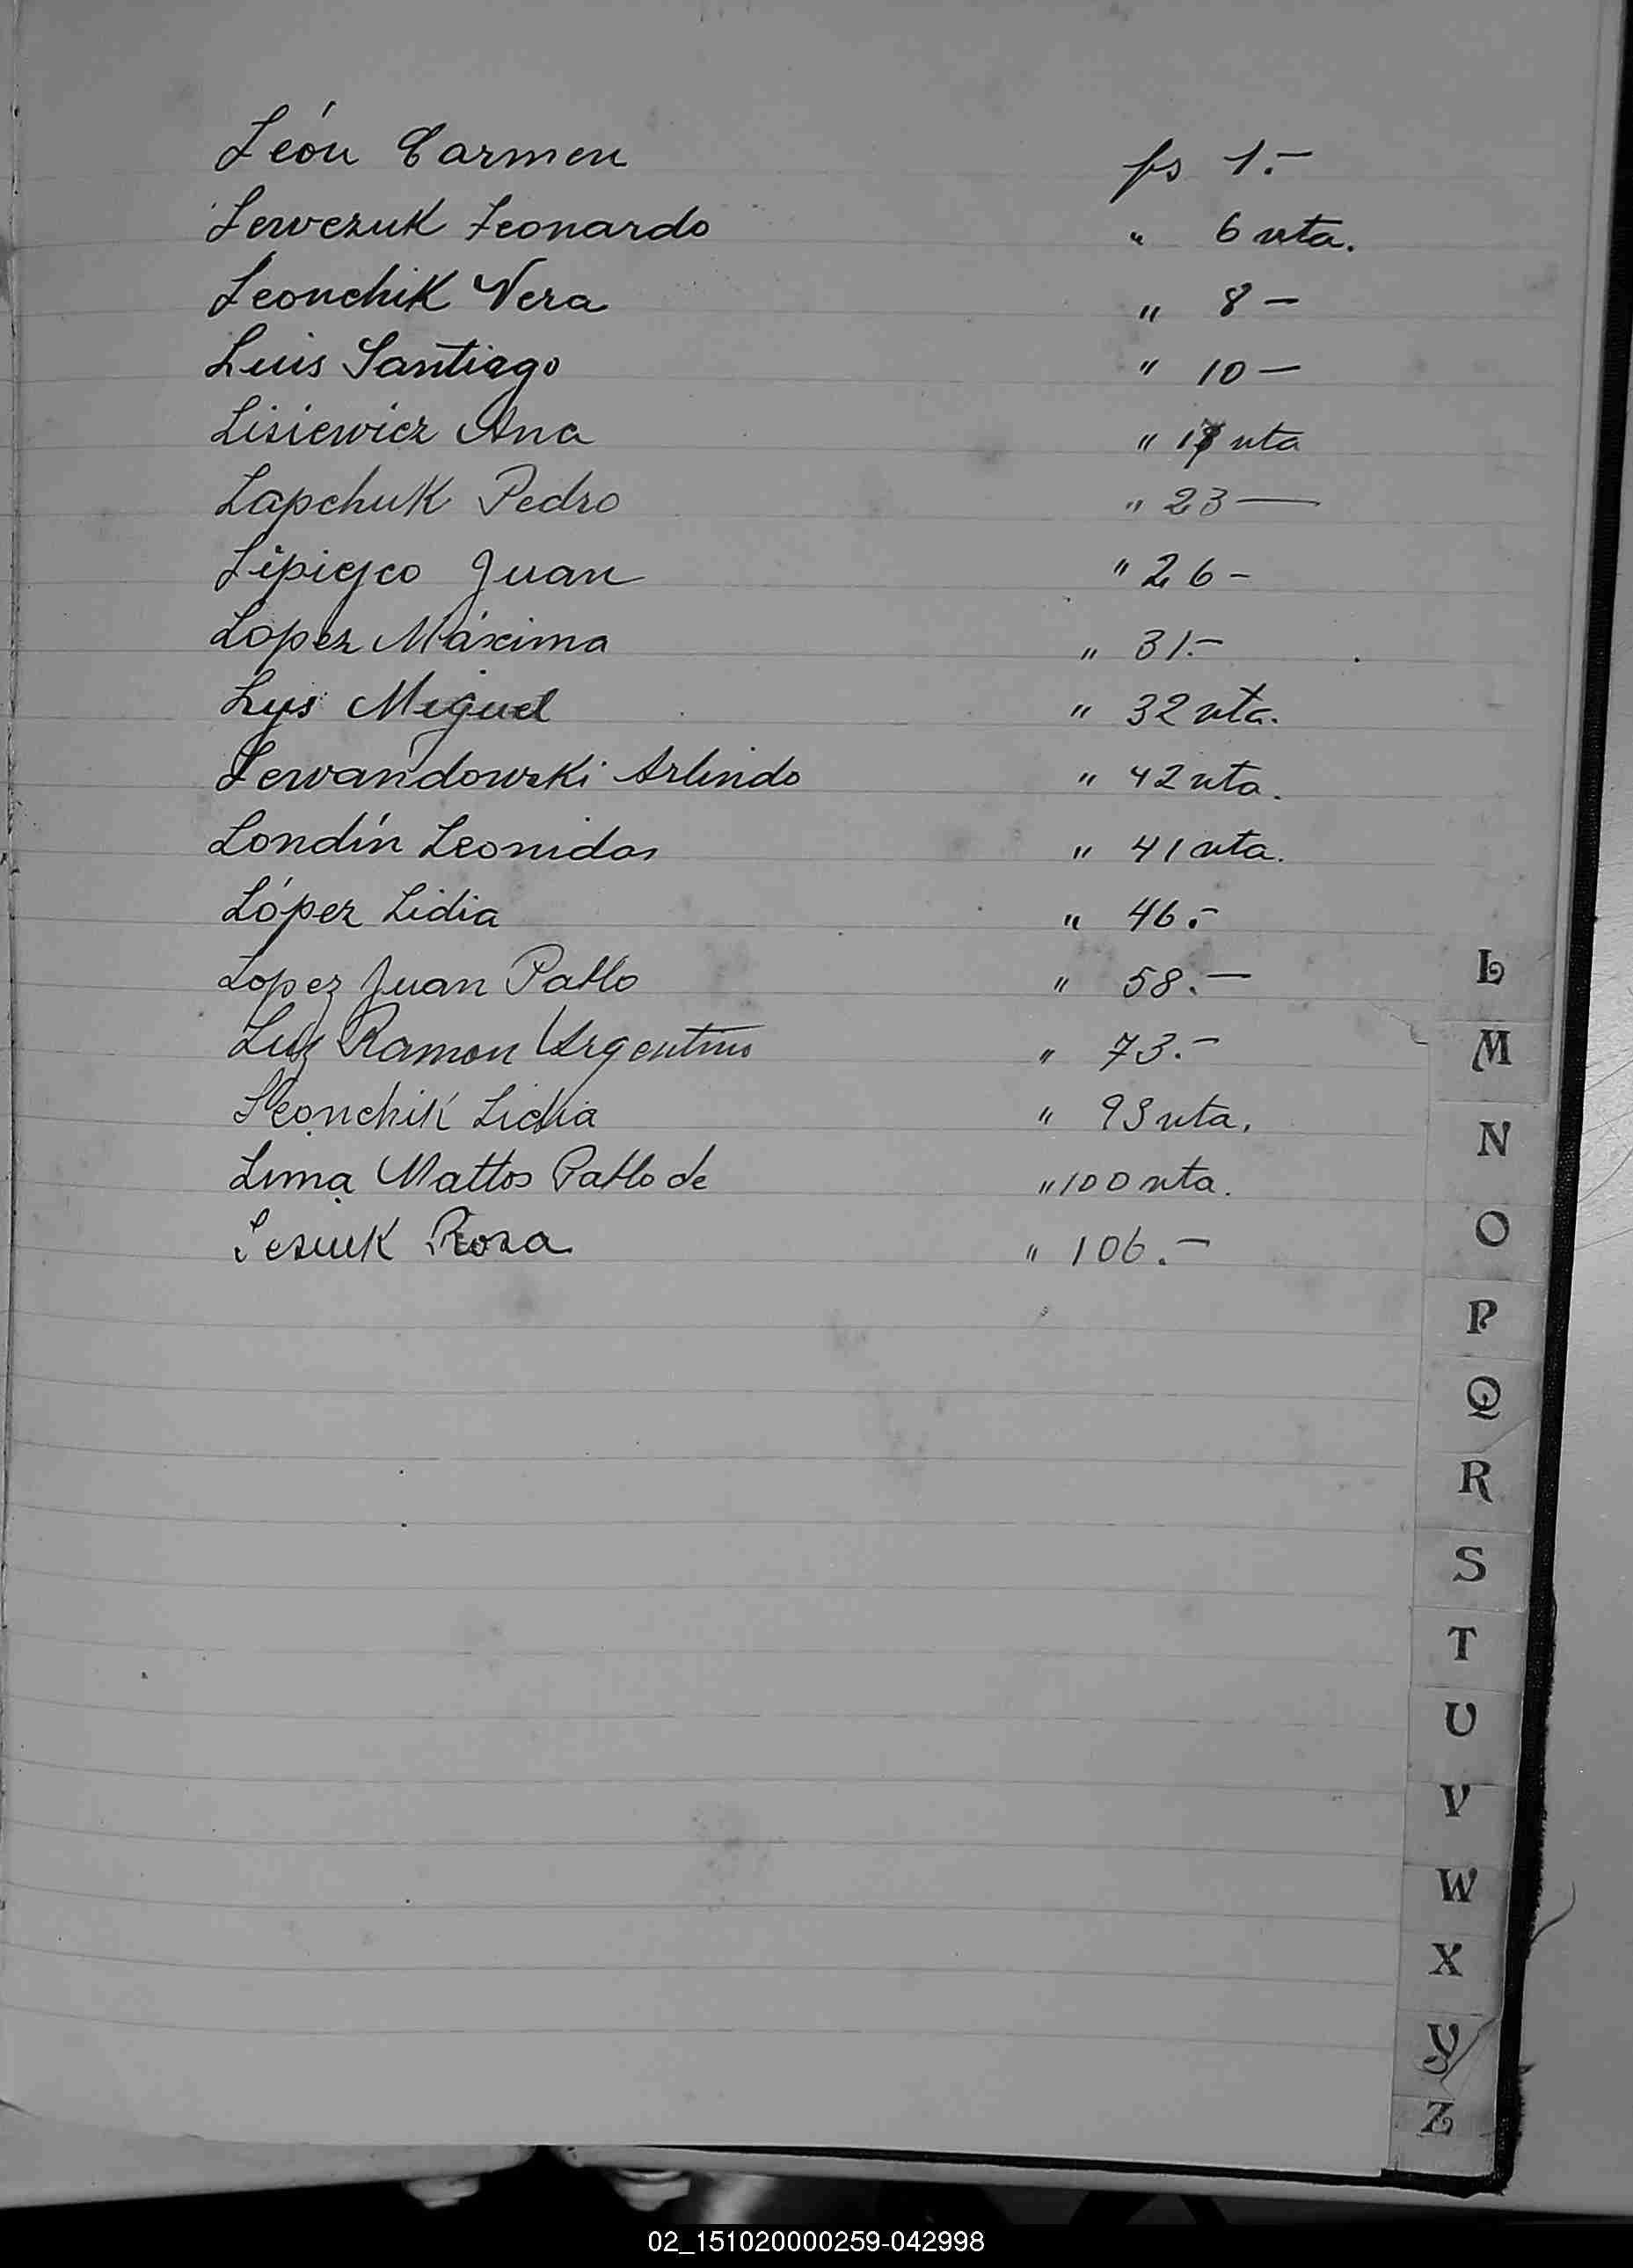 León Carmen fs 1.-
Lewczuk Leonardo " 6 vta.
Leonchik Vera " 8 -
Luis Santiago " 10 -
Lisiewicz Ana " vta
Lapchuk Pedro " 23 -
Lipiejco Juan " 26 -
Lopez Máxima " 31.-
Lys Miguel " 32 vta.
Lewandowski Arlindo " 42 vta.
Londín Leonidas " 41 vta.
López Lidia " 46.-
Lopez Juan Pablo " 58.-
Luz Ramon Argentino " 73.-
Leonchik Lidia " 93 vta.
Lima Mattos Pablo de " 100 vta.
Lesiuk Rosa " 106.-
L
M
N
O
P
Q
R
S
T
U
V
W
X
Y
Z
02_151020000259-042998